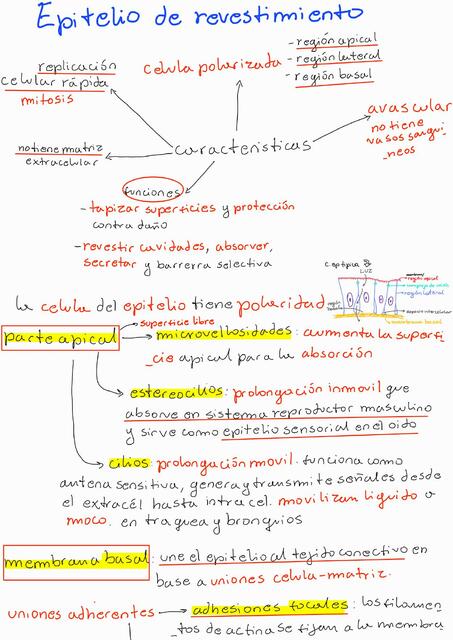 Epitelio de revestimiento
replicación
celular rápida
mitosis
celula polarizada
- región apical
- región lateral
- región basal
avascular
no tiene
vasos sangui
_neos
no tiene matriz
extracelular
características
funciones
- tapizar superficies y protección
contra daño
- revestir cavidades, absorver,
secretar y barrera selectiva
LUZ
región apical
región lateral
espacio intercelular
membrana basal
la celula del epitelio tiene polaridad
superficie libre
parte apical
microvellosidades: aumenta la superfi
_cie apical para la absorción
estereocilios: prolongación inmovil que
absorve en sistema reproductor masculino
y sirve como epitelio sensorial en el oido
cilios: prolongación movil. funciona como
antena sensitiva, genera y transmite señales desde
el extracél hasta intracel. movilizan liquido o
moco. en traquea y bronquios
membrana basal: une el epitelio al tejido conectivo en
base a uniones celula-matriz.
uniones adherentes
adhesiones focales: los filamen_
_tos de actina se fijan a la membra